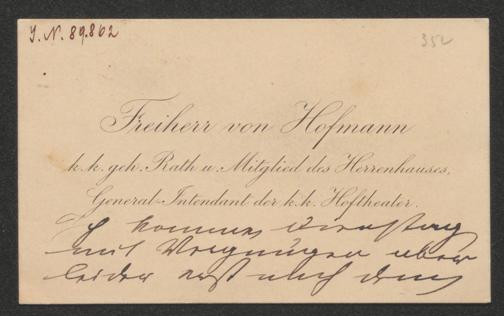 J. N. 89.862
352
Freiherr von Hofmann
k. k. geh. Rath u. Mitglied des Herrenhauses,
General-Intendant der k. k. Hoftheater.
komme Dienstag
mit Vergnügen aber
leider erst nach dem